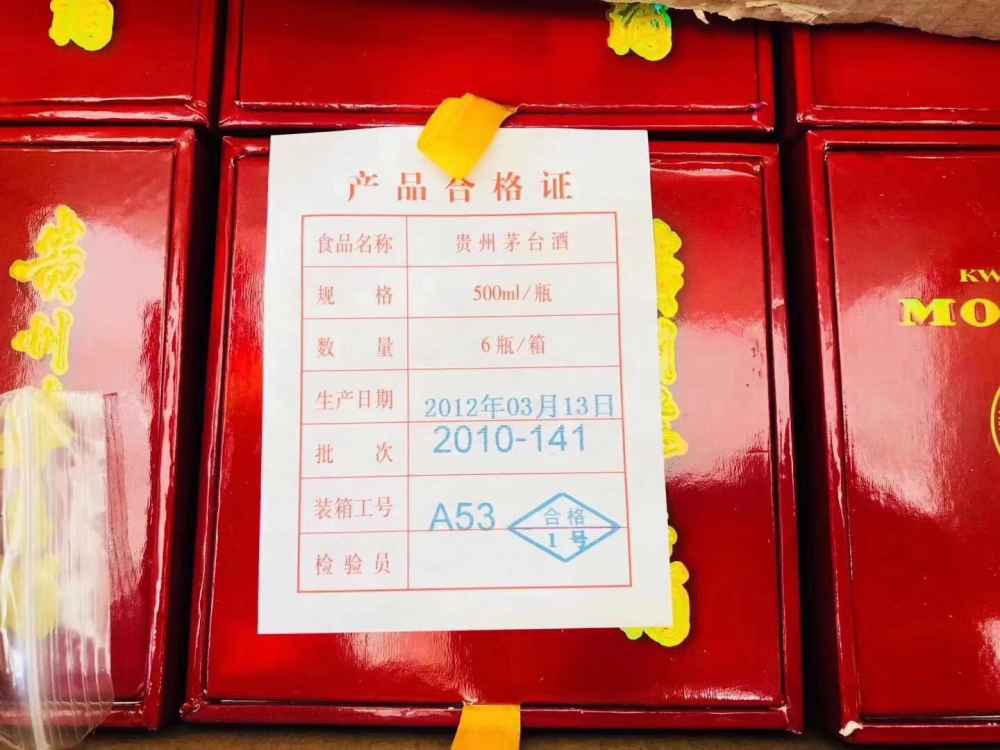 酒
酒
产品合格证
食品名称 贵州茅台酒
规格 500ml/瓶
数量 6瓶/箱
生产日期 2012年03月13日
批次 2010-141
装箱工号 A53
检验员
合格
1号
贵州
KW
MO